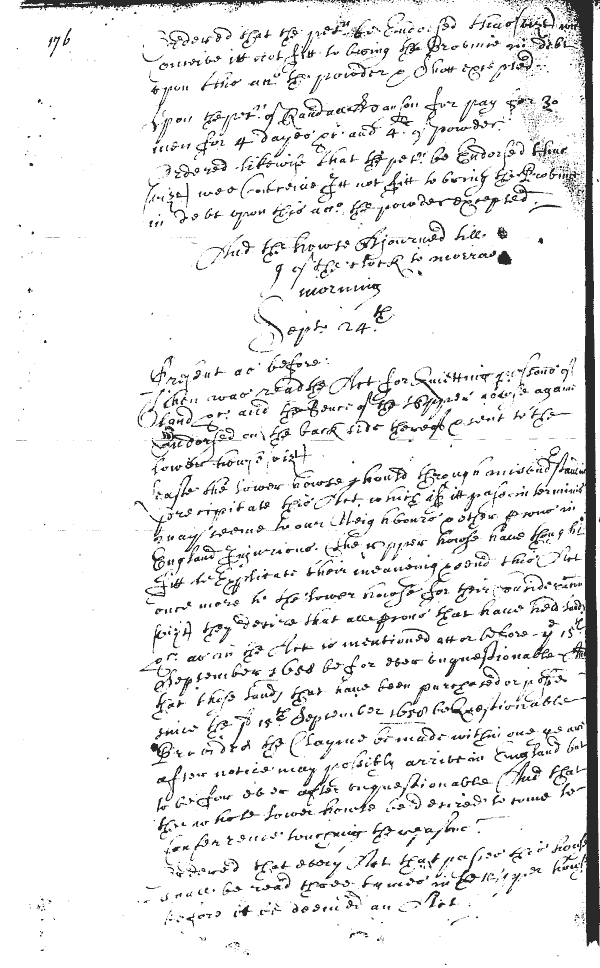 176
Ordered that the petn be Endorsed thus (vizt) wee
Conceive itt not fitt to bring the Province in debt
upon this acct the powder & Shott excepted
Upon the petn of Randall Hanson for pay for 30
men for 4 dayes &c and 4lb of powder
Ordered likewise that the petn be Endorsed thus
(vizt) wee Conceive Itt not fitt to bring the Province
in debt upon this acct the powder excepted
And the howse Adjourned till
9 of the Clock to morrow
morning
Septr 24th
Present as before.
Then was read the Act for Quietting possions of
Land &c and the Sence of the Upper howse againe
Endorsed on the back side thereof & sent to the
lower house (vizt)
Lease the lower howse should through misund'standing
precipitate this Act, which if itt passe in terminis
may seeme to our Neighbours & other psons in
England Injurious. The upper howse have thought
fitt to Explicate their meaneing & send this Act
once more to the lower howse for their consideracon
(vizt) they desire that all psons that have held land
&c as in the Act is mentioned att or before ye 15th
September 1658 be for ever unquestionable And
that those lands that have been purchased or
since the sd 15th September 1658 be Questionable
Provided the Clayme be made within one yeare
after notice may possibly arrive in England but
to be for ever after unquestionable And that
the whole lower howse be desired to come to
Conferrence touching the reasons
Ordered that every Act that passes this house
shall be read three tymes in the upper house
before it is deemed an Act